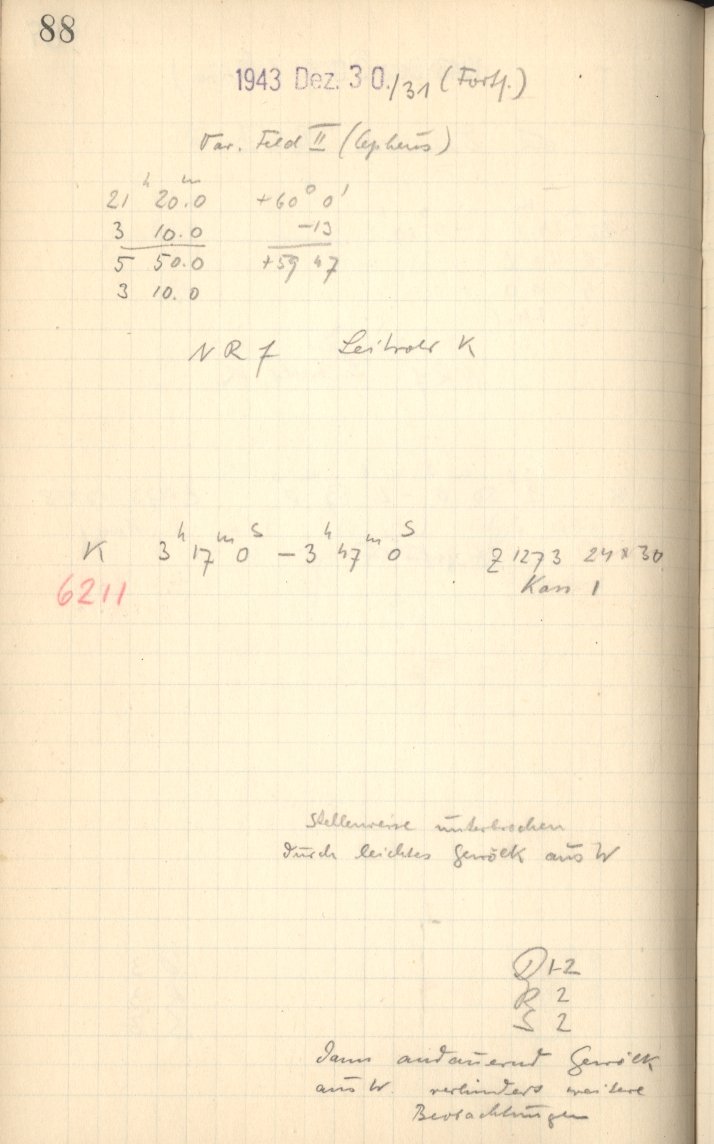 88
1943 Dez. 30./31 (Forts.)
Var. Feld II (Cepheus)
21ʰ 20.0ᵐ +60° 0'
3 10.0 -13
5 50.0 +59 47
3 10.0
N R f Leitrohr K
K 3ʰ 17ᵐ 0ˢ – 3ʰ 47ᵐ 0ˢ Z 1273 24×30
6211 Kass 1
Stellenweise unterbrochen
durch leichtes Gewölk aus W
D 1-2
R 2
S 2
Dann andauernd Gewölk
aus W. verhindert weitere
Beobachtungen